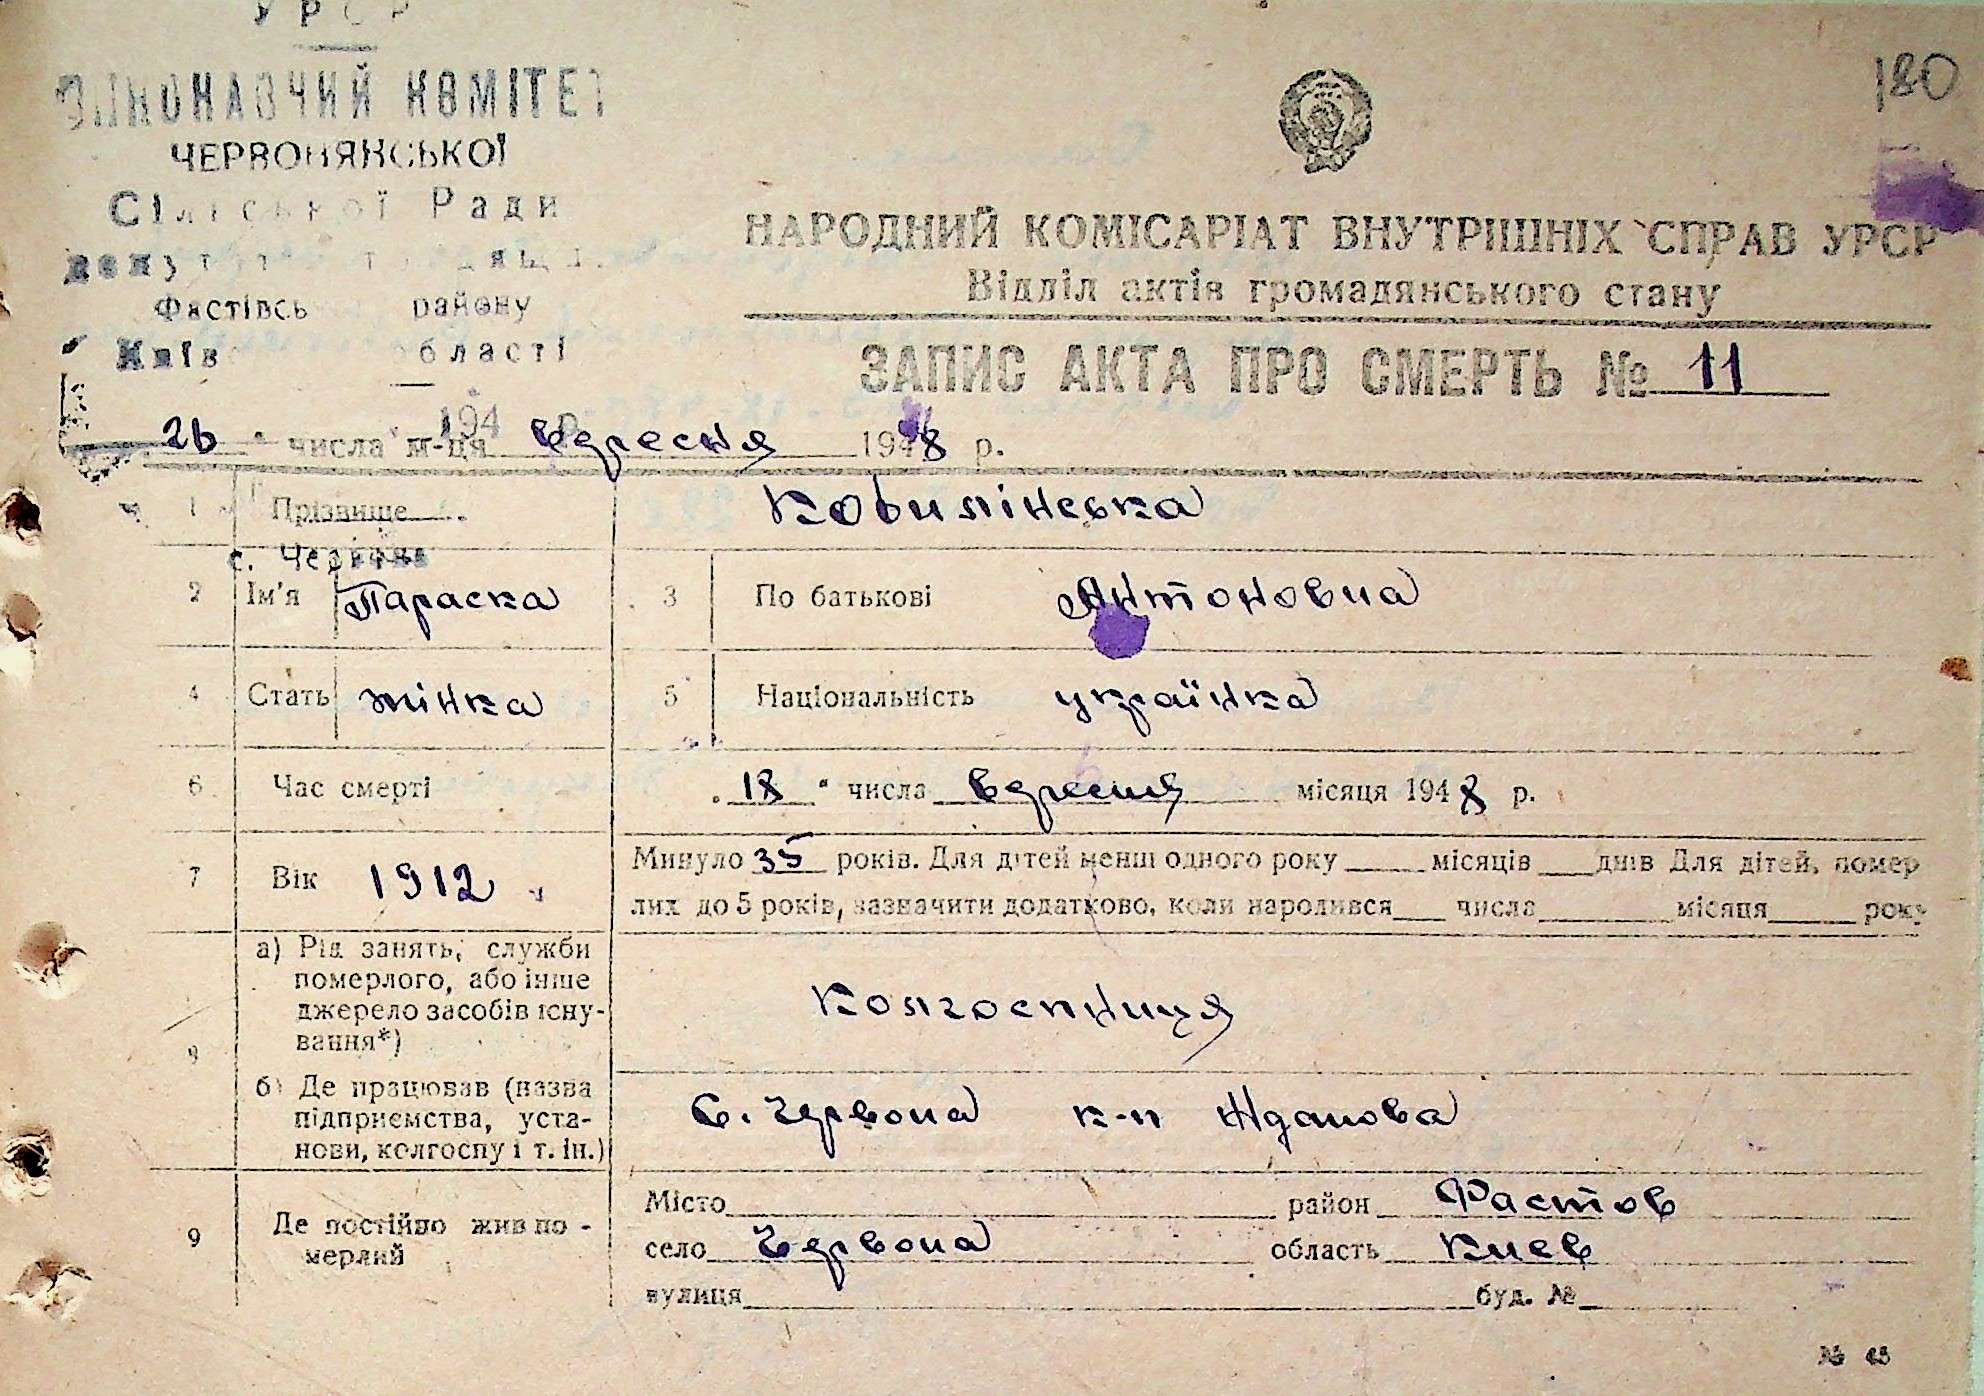 УРСР
ВИКОНАВЧИЙ КОМІТЕТ
ЧЕРВОНЯНСЬКОЇ
Сільської Ради
Фастівсь району
Київ області
194 р.
с. Червоне
180
НАРОДНИЙ КОМІСАРІАТ ВНУТРІШНІХ СПРАВ УРСР
Відділ актів громадянського стану
ЗАПИС АКТА ПРО СМЕРТЬ № 11
26 " числа м-ця вересня 1948 р.
1 Прізвище Кобилінська
2 Ім'я Параска 3 По батькові Антоновна
4 Стать жінка 5 Національність українка
6 Час смерті „ 18 " числа вересня місяця 1948 р.
7 Вік 1912 Минуло 35 років. Для дітей менш одного року ____ місяців ____ днів Для дітей, помер
лих до 5 років, зазначити додатково, коли народився ____ числа ____ місяця ____ року
8 а) Рід занять, служби
померлого, або інше
джерело засобів існу-
вання*)
Колгоспниця
б) Де працював (назва
підприємства, уста-
нови, колгоспу і т. ін.)
С. Червона к-п Жданова
9 Де постійно жив по-
мерлий
Місто ____ район Фастов
село Червона область Киев
вулиця ____ буд. № ____